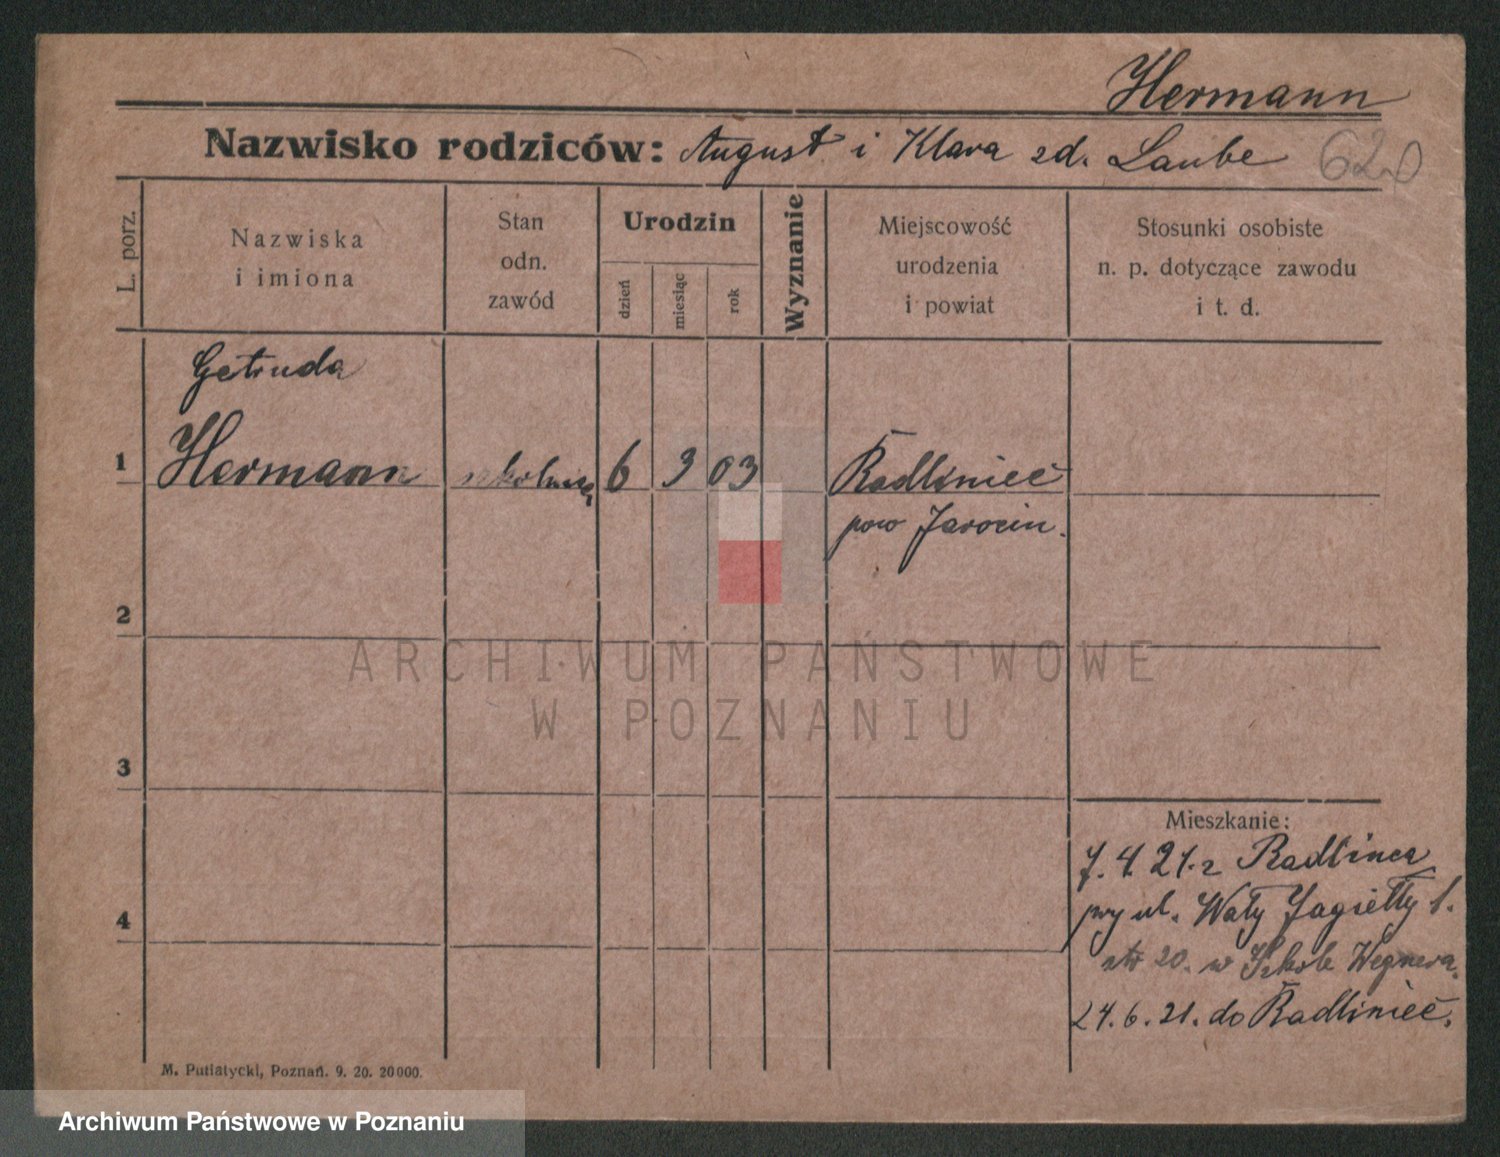 Hermann
Nazwisko rodziców: August i Klara zd. Laube
L. porz.
Nazwiska
i imiona
Stan
odn.
zawód
Urodzin
dzień
miesiąc
rok
Wyznanie
Miejscowość
urodzenia
i powiat
Stosunki osobiste
n. p. dotyczące zawodu
i t. d.
Getruda
1 Hermann 6 3 03 Radliniec
pow Jarocin.
2
3
4
Mieszkanie:
7. 4. 21. z Radlinca
przy ul. Wały Jagiełły 1.
20. w Szkole Wegnera.
24. 6. 21. do Radliniec.
M. Putiatycki, Poznań. 9. 20. 20000.
ARCHIWUM PAŃSTWOWE
W POZNANIU
Archiwum Państwowe w Poznaniu